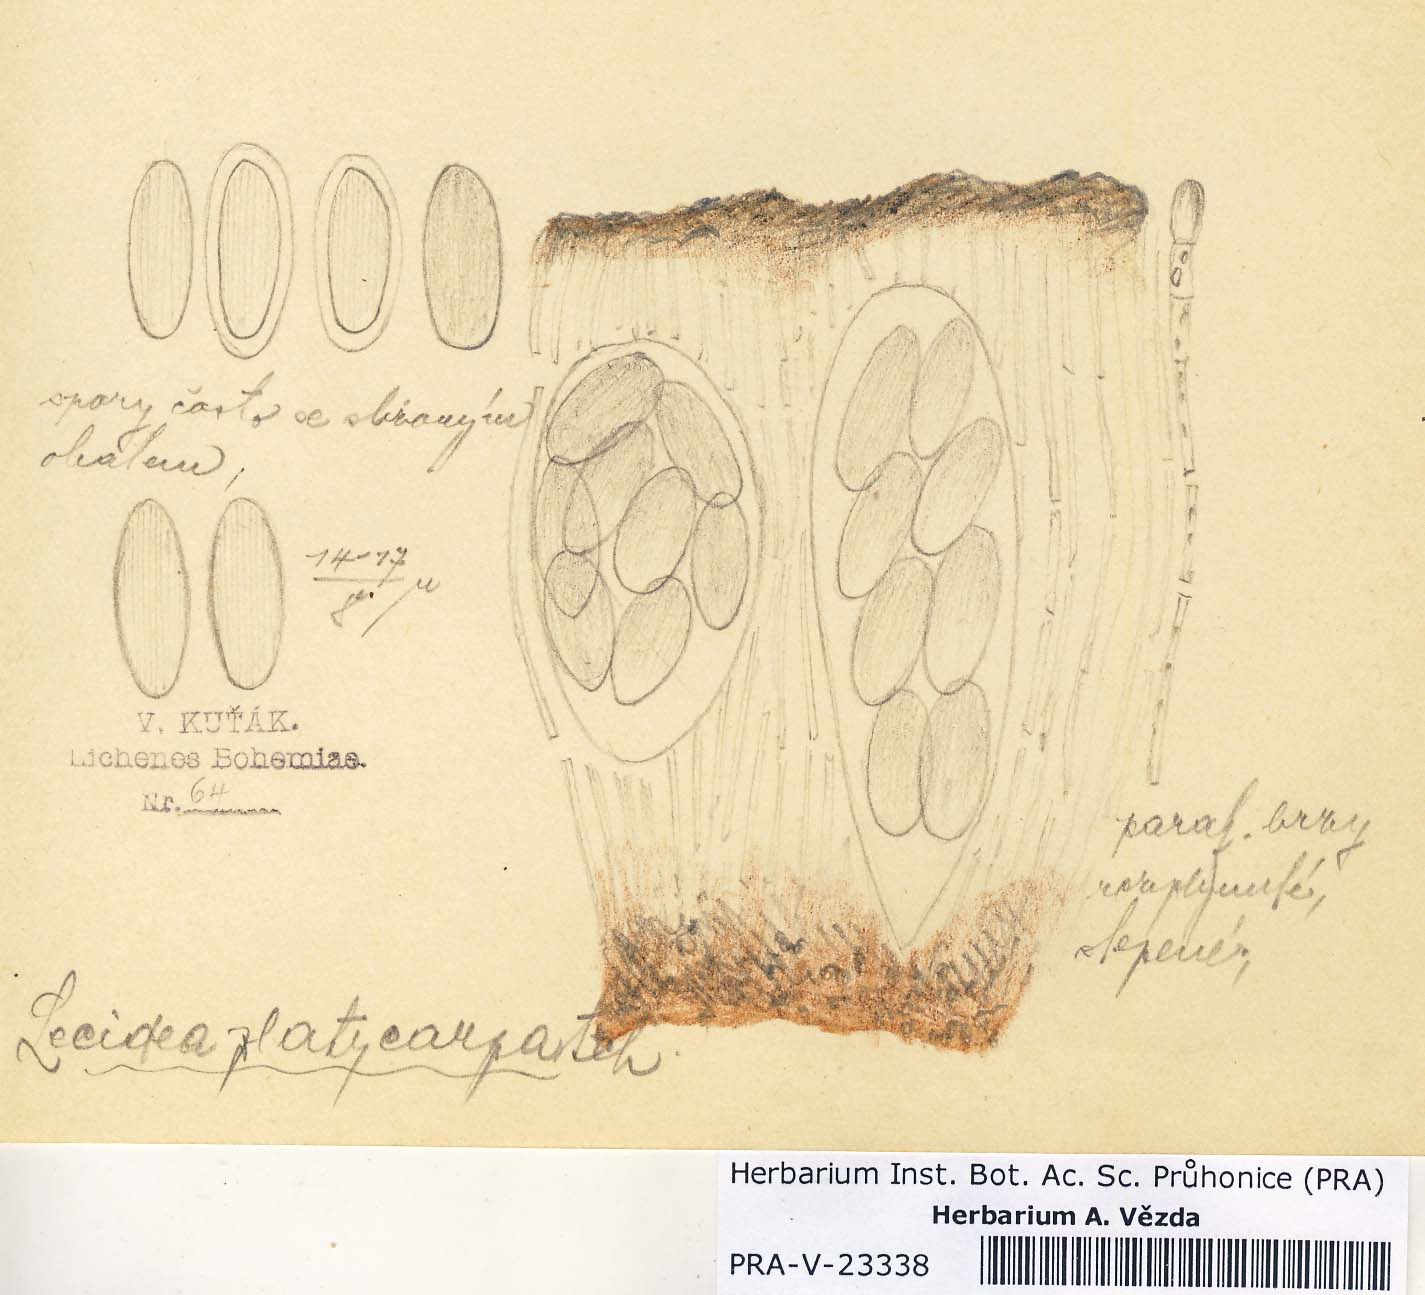 spory často se sbraným
obalem,
14-17
8 / u
V. KUŤÁK.
Lichenes Bohemiae.
Nr. 64
paraf. brzy
rozplynulé,
slepené,
Lecidea platycarpa Ach.
Herbarium Inst. Bot. Ac. Sc. Průhonice (PRA)
Herbarium A. Vězda
PRA-V-23338